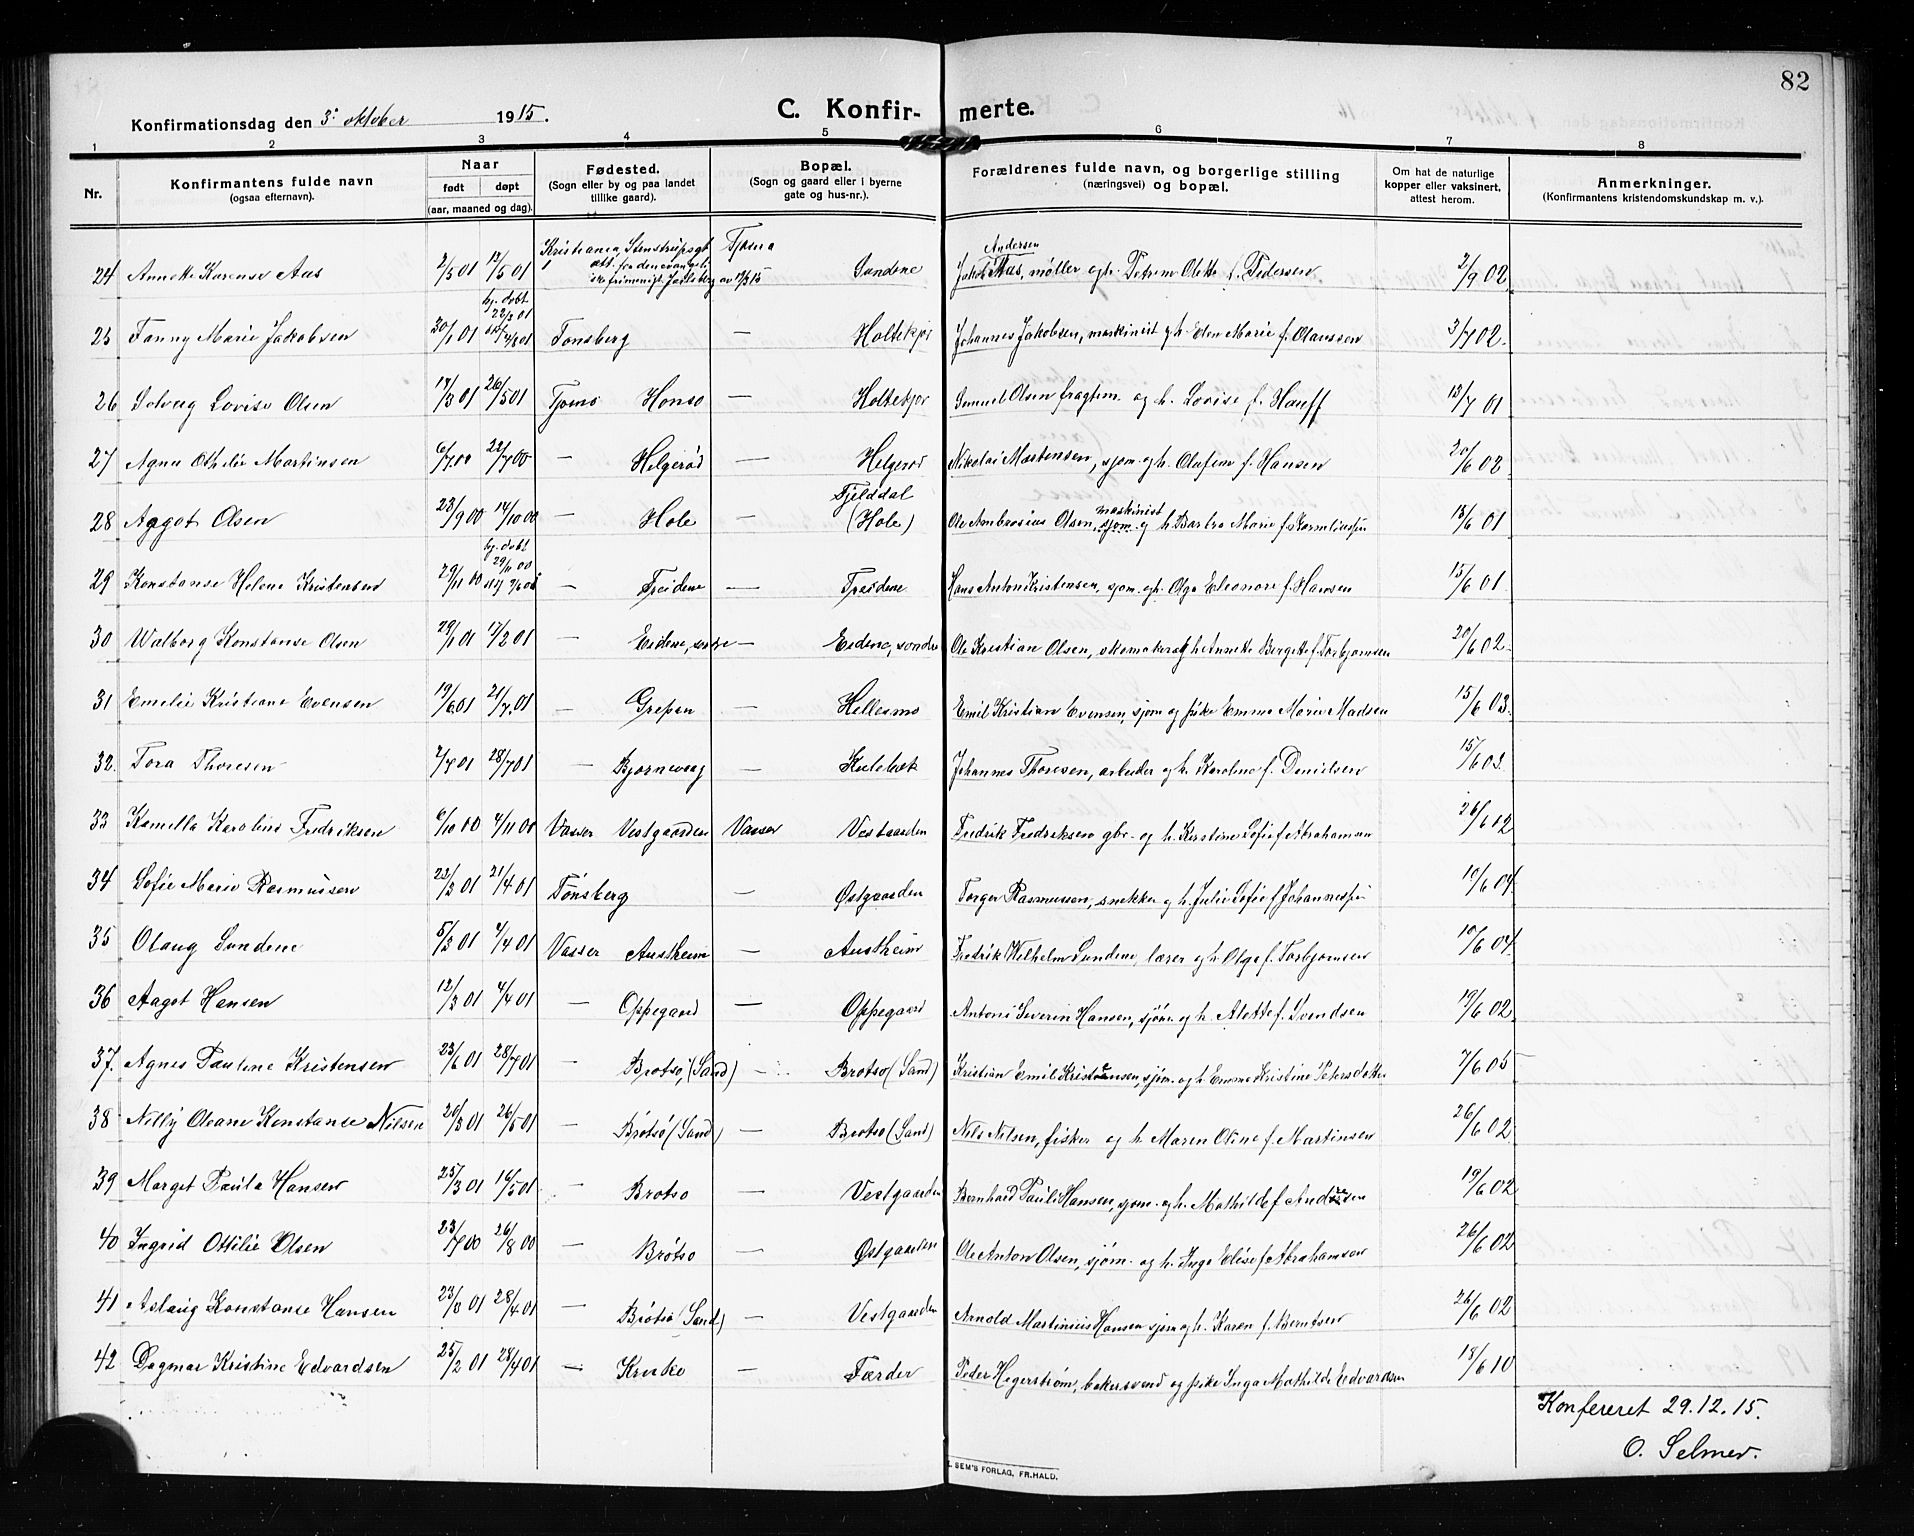 82
Konfirmationsdag den 3' oktober 1915.
C. Konfirmerte.
1 2 3 4 5 6 7 8
Nr. Konfirmantens fulde navn (ogsaa efternavn). Naar født døpt (aar, maaned og dag). Fødested. (Sogn eller by og paa landet tillike gaard). Bopæl. (Sogn og gaard eller i byerne gate og hus-nr.). Forældrenes fulde navn, og borgerlige stilling (næringsvei) og bopæl. Om hat de naturlige kopper eller vaksinert, attest herom. Anmerkninger. (Konfirmantens kristendomskundskap m. v.).
24 Annette Karense Aas 2/5 01 12/5 01 Kristiania, Tjømø Sundene Jakob Andersen Aas, møller og h. Petrine Olette f. Pedersen 2/9 02
25 Fanny Marie Jakobsen 30/1 01 hj. døbt 22/3 01 Tønsberg — Holtekjær Johannes Jakobsen, maskinist og h. Elen Marie f. Olaussen 3/7 02
26 Solveig Lovise Olsen 17/3 01 26/5 01 Tjømø Honsø — Holtekjær Samuel Olsen fragtem. og h. Lovise f. Hauff 13/7 01
27 Agna Othilie Martinsen 6/7 00 22/7 00 — Helgerød — Helgerød Nikolai Martensen, sjøm. og h. Olufine f. Hansen 20/6 02
28 Aagot Olsen 23/9 00 14/10 00 — Hole — Fjelddal (Hole) Ole Ambrosius Olsen, maskinist sjøm. og h. Barbro Marie f. 18/6 01
29 Konstanse Helene Kristensen 29/11 00 hj. døbt 29/11 00 — Treidene — Treidene Hans Anton Kristensen, sjøm. og h. Olga Eleonore f. Hansen 15/6 01
30 Walborg Konstanse Olsen 29/1 01 17/2 01 — Eidene, søndre — Eidene, søndre Ole Kristian Olsen, skomaker og h. Annette Bergette f. Torbjørnsen 20/6 02
31 Emelie Kristiane Evensen 19/6 01 21/7 01 — Grepan — Hellesmo Emil Kristian Evensen, sjøm og pike Emma Marie Madsen 15/6 03
32. Tora Thoresen 7/7 01 28/7 01 — Bjørnevaag — Kulebæk Johannes Thoresen, arbeider og h. Karoline f. Danielsen 15/6 03
33 Kamilla Karoline Fredriksen 6/10 00 4/11 00 Vasser Vestgaarden Vasser Vestgaarden Fredrik Fredriksen gbr. og h. Kirstine Sofie f. Abrahamsen 26/6 12
34 Sofie Marie Rasmussen 22/3 01 21/4 01 Tønsberg — Østgaarden Torger Rasmussen, snekker og h. Julie Sofie f. 10/6 04
35 Olaug Sundene 5/3 01 4/4 01 Vasser Austheim — Austheim Fredrik Wilhelm Sundene, lærer og h. Olga f. Torbjørnsen 10/6 04
36 Aagot Hansen 12/3 01 4/4 01 — Oppegaard — Oppegaard Antoni Severin Hansen, sjøm. og h. Alette f. Svendsen 19/6 02
37. Agnes Pauline Kristensen 23/6 01 28/7 01 — Brøtsø, (Sand) — Brøtsø (Sand) Kristian Emil Kristensen, sjøm. og h. Emma Kristine 7/6 05
38 Nelly Oleane Konstanse Nilsen 20/3 01 26/5 01 — Brøtsø (Sand) — Brøtsø (Sand) Nils Nilsen, fisker og h. Maren Oline f. Martinsen 26/6 02
39 Marget Paula Hansen 25/3 01 16/5 01 — Brøtsø — Vestgaarden Bernhard Pauli Hansen, sjøm. og h. Mathilde f. Andersen 19/6 02
40 Ingrid Ottilie Olsen 23/7 00 26/8 00 — Brøtsø — Østgaarden Ole Anton Olsen, sjøm. og h. Inga Elise f. Abrahamsen 26/6 02
41 Aslaug Konstanse Hansen 23/3 01 28/4 01 — Brøtsø (Sand) — Vestgaarden Arnold Martinius Hansen sjøm og h. Karen f. Berntsen 26/6 02
42 Dagmar Kristine Edvardsen 25/2 01 28/4 01 — Kruke — Færder Peder Hegerstrøm, bakersvend og pike Inga Mathilde Edvardsen 18/6 10
Konfereret 29.12.15.
O. Selmer.
SEM'S FORLAG, FR.HALD.